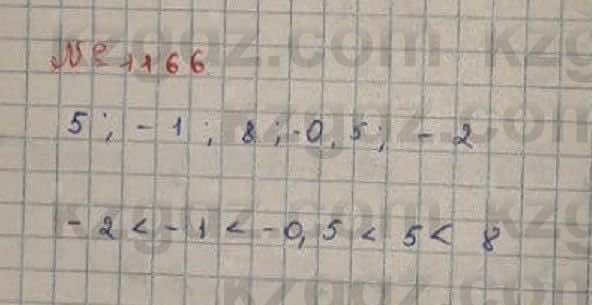 № 1166
5; -1; 8; -0,5; -2
-2 < -1 < -0,5 < 5 < 8